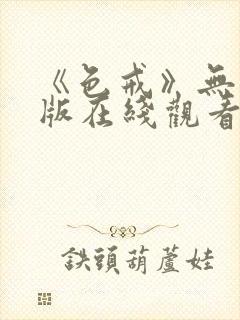 《色戒》無
版在綫觀看
鉄頭葫蘆娃